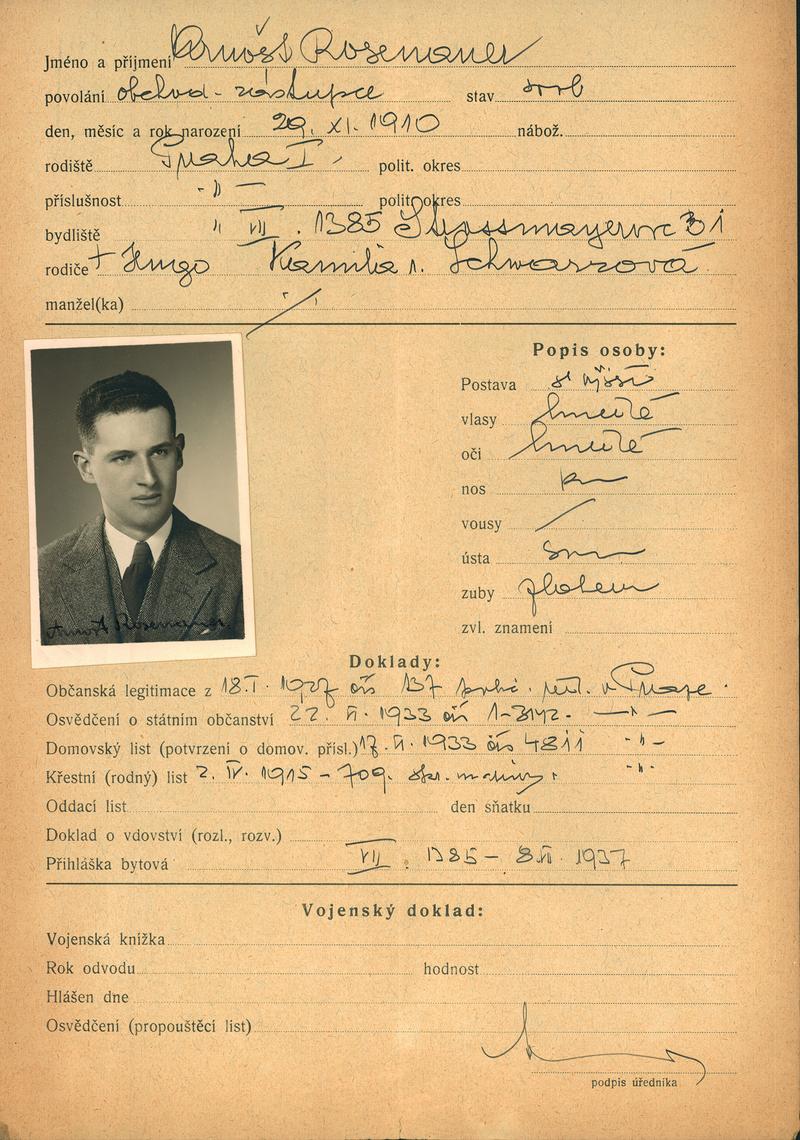 Jméno a příjmení Arnošt Rosenauer
povolání obchod - zástupce stav svob
den, měsíc a rok narození 29. XI. 1910 nábož.
rodiště Praha I polit. okres
příslušnost - " - polit. okres
bydliště " VII. 1385 Strossmayerovo 31
rodiče + Hugo Kamila r. Schwarzová
manžel(ka) /
Popis osoby:
Postava
vlasy hnědé
oči hnědé
nos
vousy /
ústa
zuby
zvl. znamení
Arnošt Rosenauer
Doklady:
Občanská legitimace z 18.I. 1927 čís 137 řed. v Praze.
Osvědčení o státním občanství 22. VI. 1933 čís 1-3142 - — " —
Domovský list (potvrzení o domov. přísl.) 17. VI. 1933 čís 4811 - " -
Křestní (rodný) list 2. IV. 1915 - 709. - " -
Oddací list den sňatku
Doklad o vdovství (rozl., rozv.)
Přihláška bytová VII. 1385 - 8. VI. 1937
Vojenský doklad:
Vojenská knížka
Rok odvodu hodnost
Hlášen dne
Osvědčení (propouštěcí list)
podpis úředníka